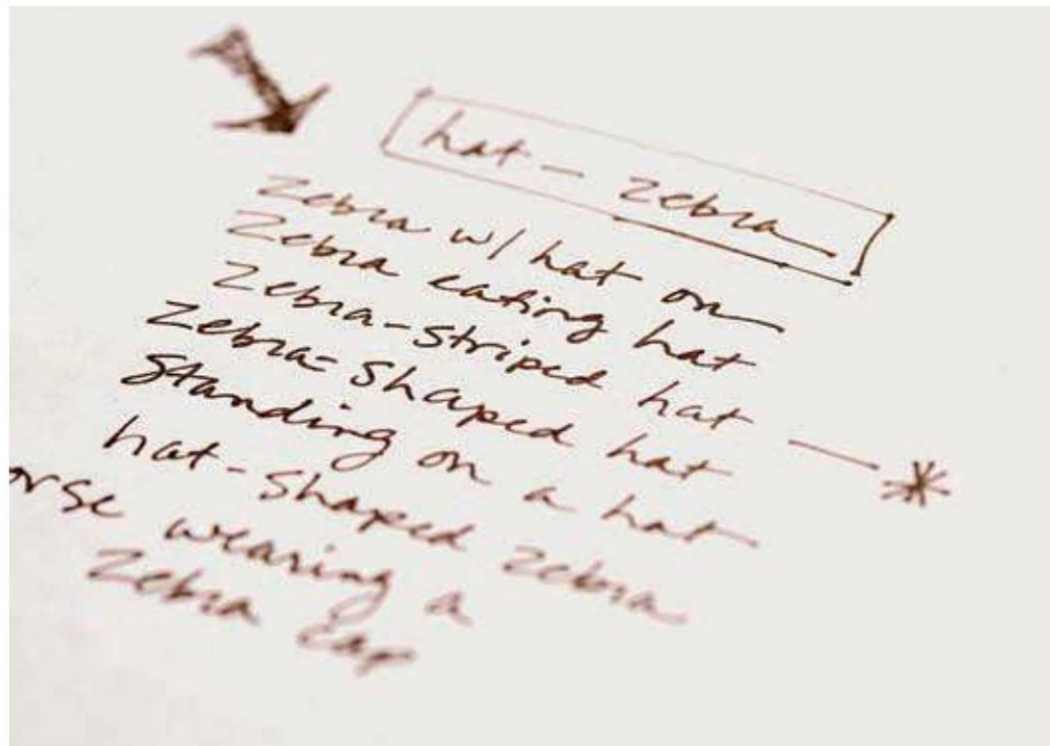 hat - zebra
Zebra w/ hat on
Zebra eating hat
Zebra-striped hat — *
Zebra-shaped hat
Standing on a hat
hat-shaped zebra
orse wearing a
Zebra cap